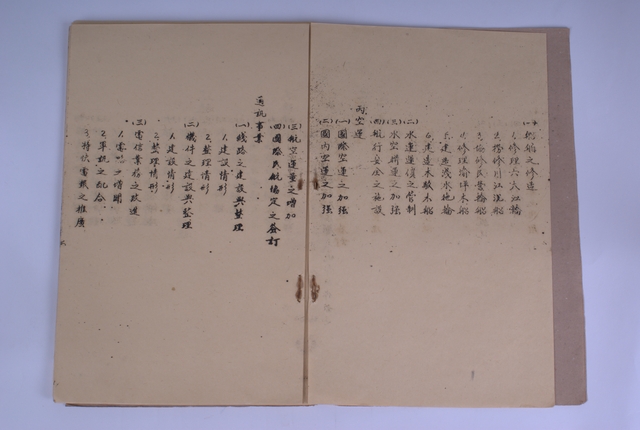 (一)船舶之修造
1.修理六大江輪
2.搭修川江淺船
3.修民營輪船
4.修理渝萍木船
5.建造淺水地輪
6.建造木駁木船
(二)水運運價之管制
(三)水空聯運之加强
(四)航行安全之施設
丙空運
(一)國際空運之加强
(二)國內空運之加强
(三)航空運量之增加
(四)國際民航協定之簽訂
通訊事業
(一)綫路之建設與整理
1.建設情形
2.整理情形
(二)機件之建設與整理
1.建設情形
2.整理情形
(三)電信業務之改進
1.電之增闢
2.軍訊之配合
3.特快電報之推廣